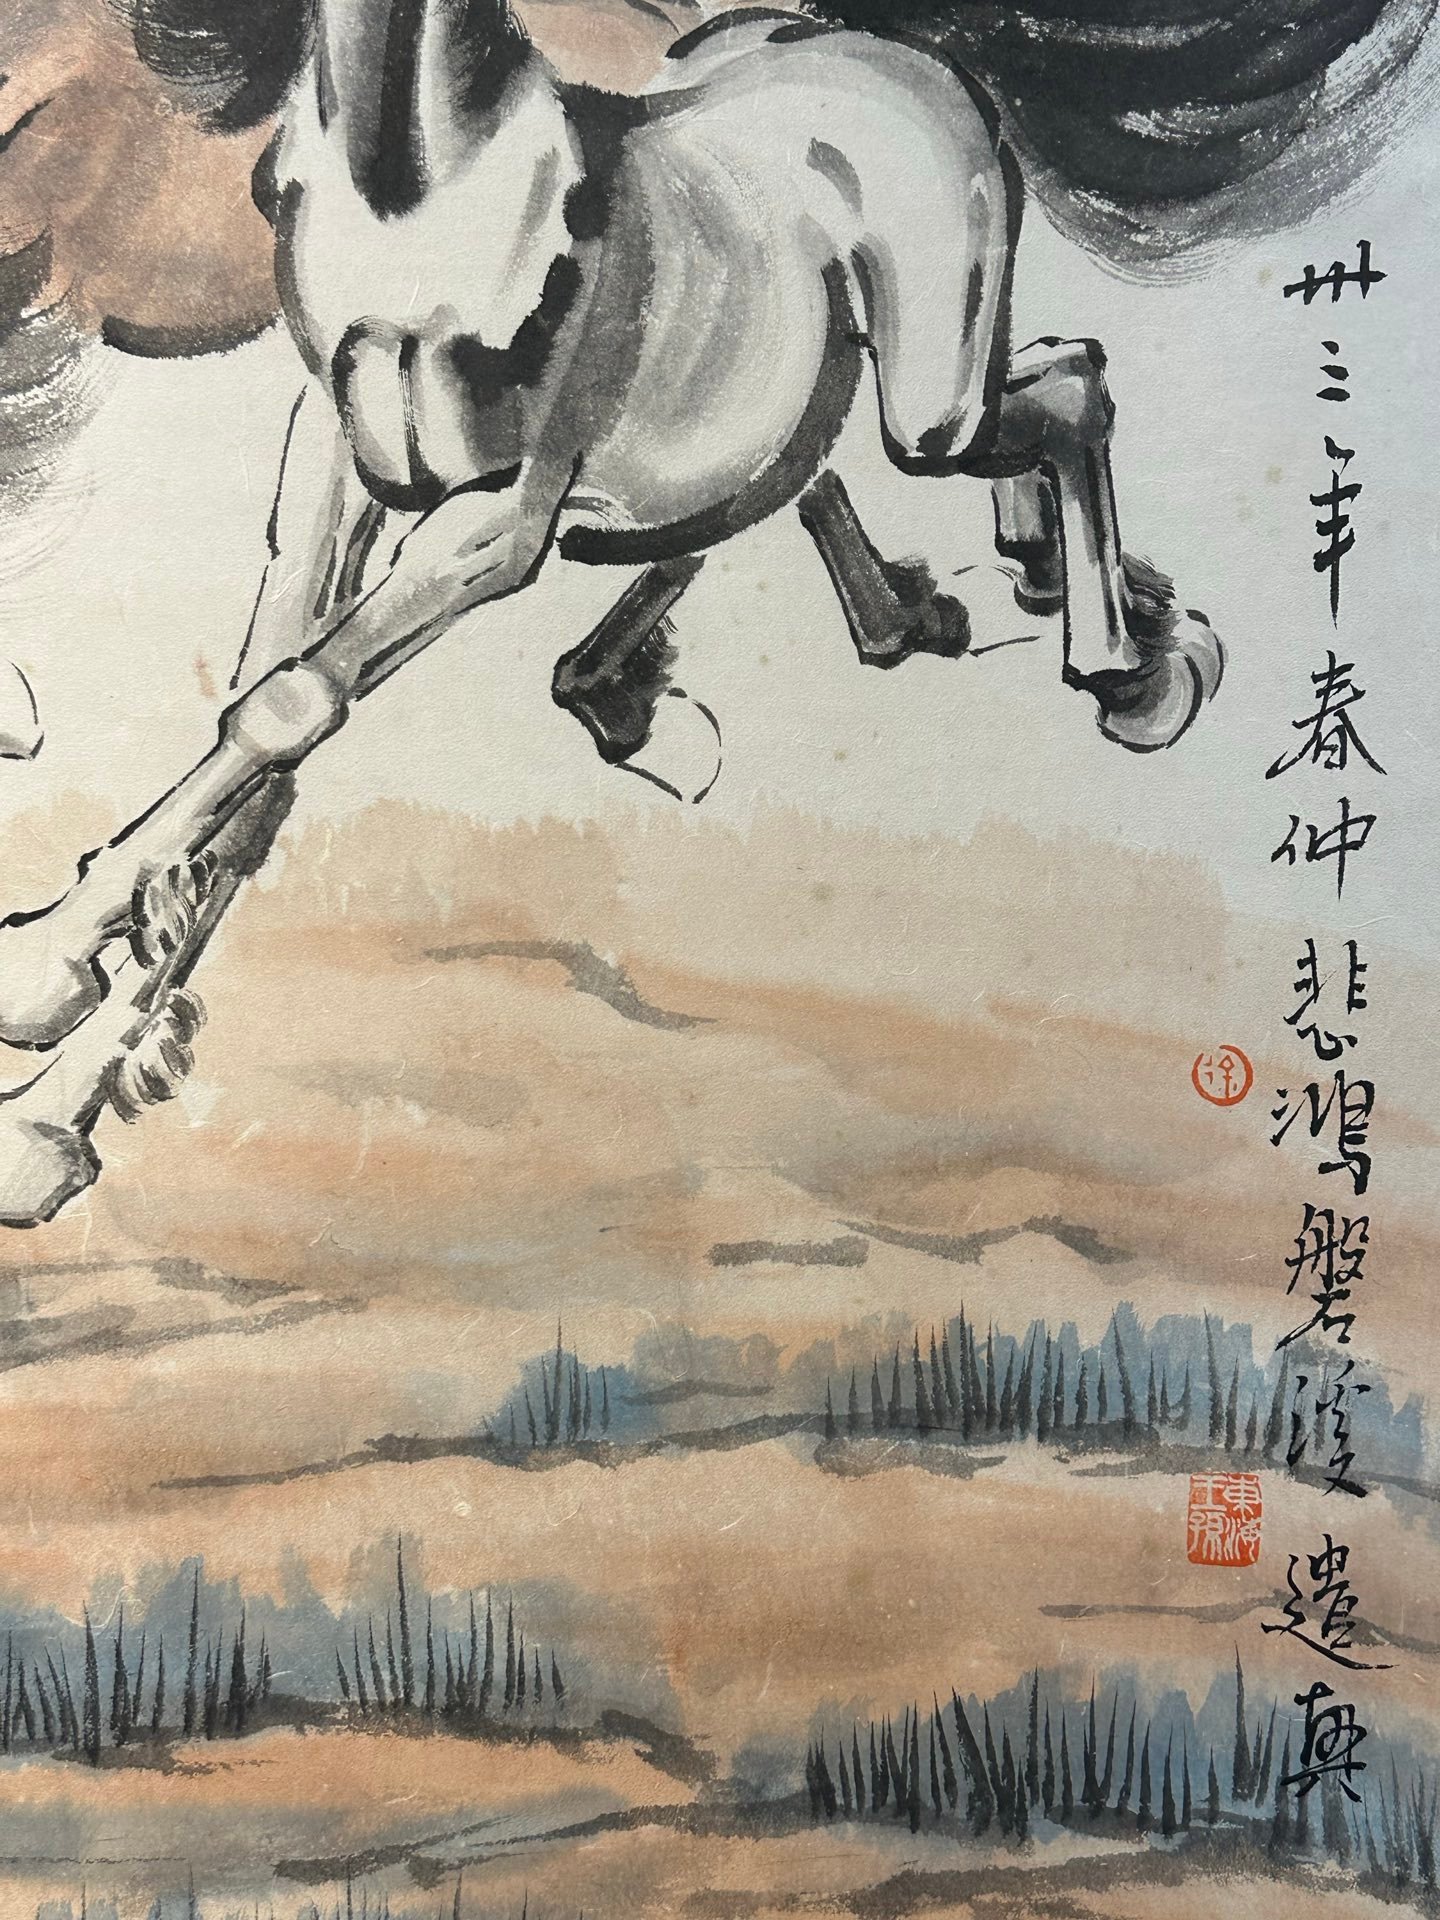 卅三年春仲悲鸿磐溪遣兴
徐
東海
王孫